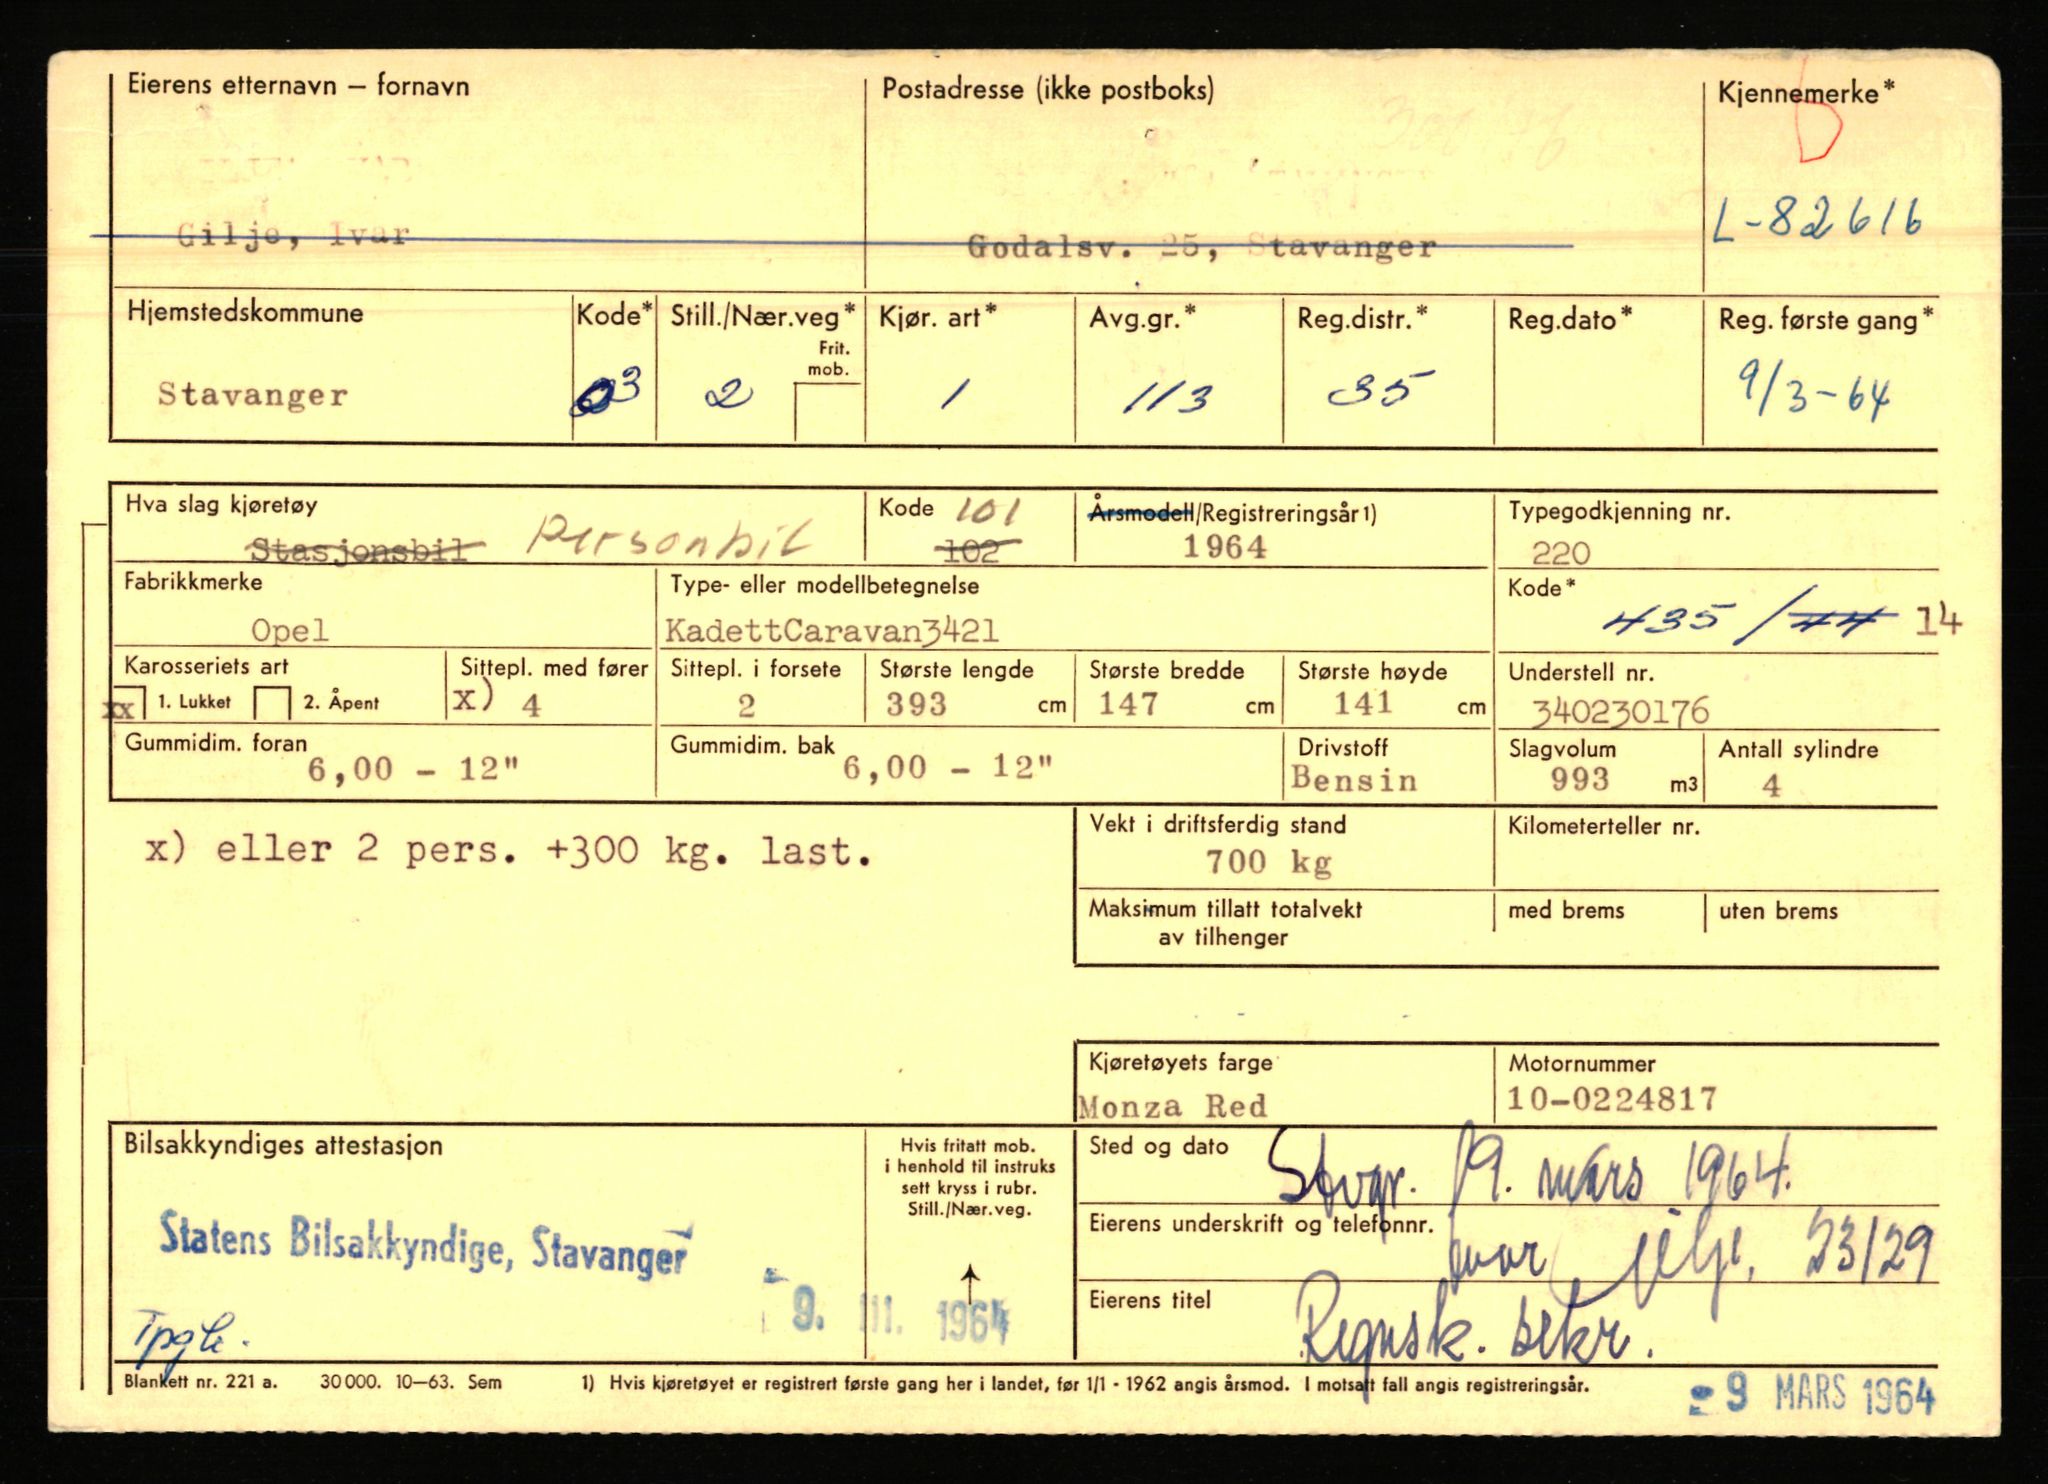 Eierens etternavn – fornavn
Postadresse (ikke postboks)
Kjennemerke*
Gilje, Ivar
Godalsv. 25, Stavanger
L-82616
Hjemstedskommune
Kode*
Still./Nær.veg*
Frit.
mob.
Kjør. art*
Avg.gr.*
Reg.distr.*
Reg.dato*
Reg. første gang*
Stavanger
03
2
1
113
35
9/3-64
Hva slag kjøretøy
Stasjonsbil Personbil
Kode 101
102
Årsmodell/Registreringsår 1)
1964
Typegodkjenning nr.
220
Fabrikkmerke
Opel
Type- eller modellbetegnelse
KadettCaravan3421
Kode*
435 /44 14
Karosseriets art
xx 1. Lukket 2. Åpent
Sittepl. med fører
x) 4
Sittepl. i forsete
2
Største lengde
393 cm
Største bredde
147 cm
Største høyde
141 cm
Understell nr.
340230176
Gummidim. foran
6,00 - 12"
Gummidim. bak
6,00 - 12"
Drivstoff
Bensin
Slagvolum
993 m3
Antall sylindre
4
x) eller 2 pers. +300 kg. last.
Vekt i driftsferdig stand
700 kg
Kilometerteller nr.
Maksimum tillatt totalvekt
av tilhenger
med brems
uten brems
Kjøretøyets farge
Monza Red
Motornummer
10-0224817
Bilsakkyndiges attestasjon
Statens Bilsakkyndige, Stavanger
9. III. 1964
Hvis fritatt mob.
i henhold til instruks
sett kryss i rubr.
Still./Nær.veg.
Sted og dato
Stvgr. 9. mars 1964.
Eierens underskrift og telefonnr.
Ivar Gilje. 23129
Eierens titel
Regnsk. sekr.
Blankett nr. 221 a. 30 000. 10–63. Sem
1) Hvis kjøretøyet er registrert første gang her i landet, før 1/1 - 1962 angis årsmod. I motsatt fall angis registreringsår.
- 9 MARS 1964